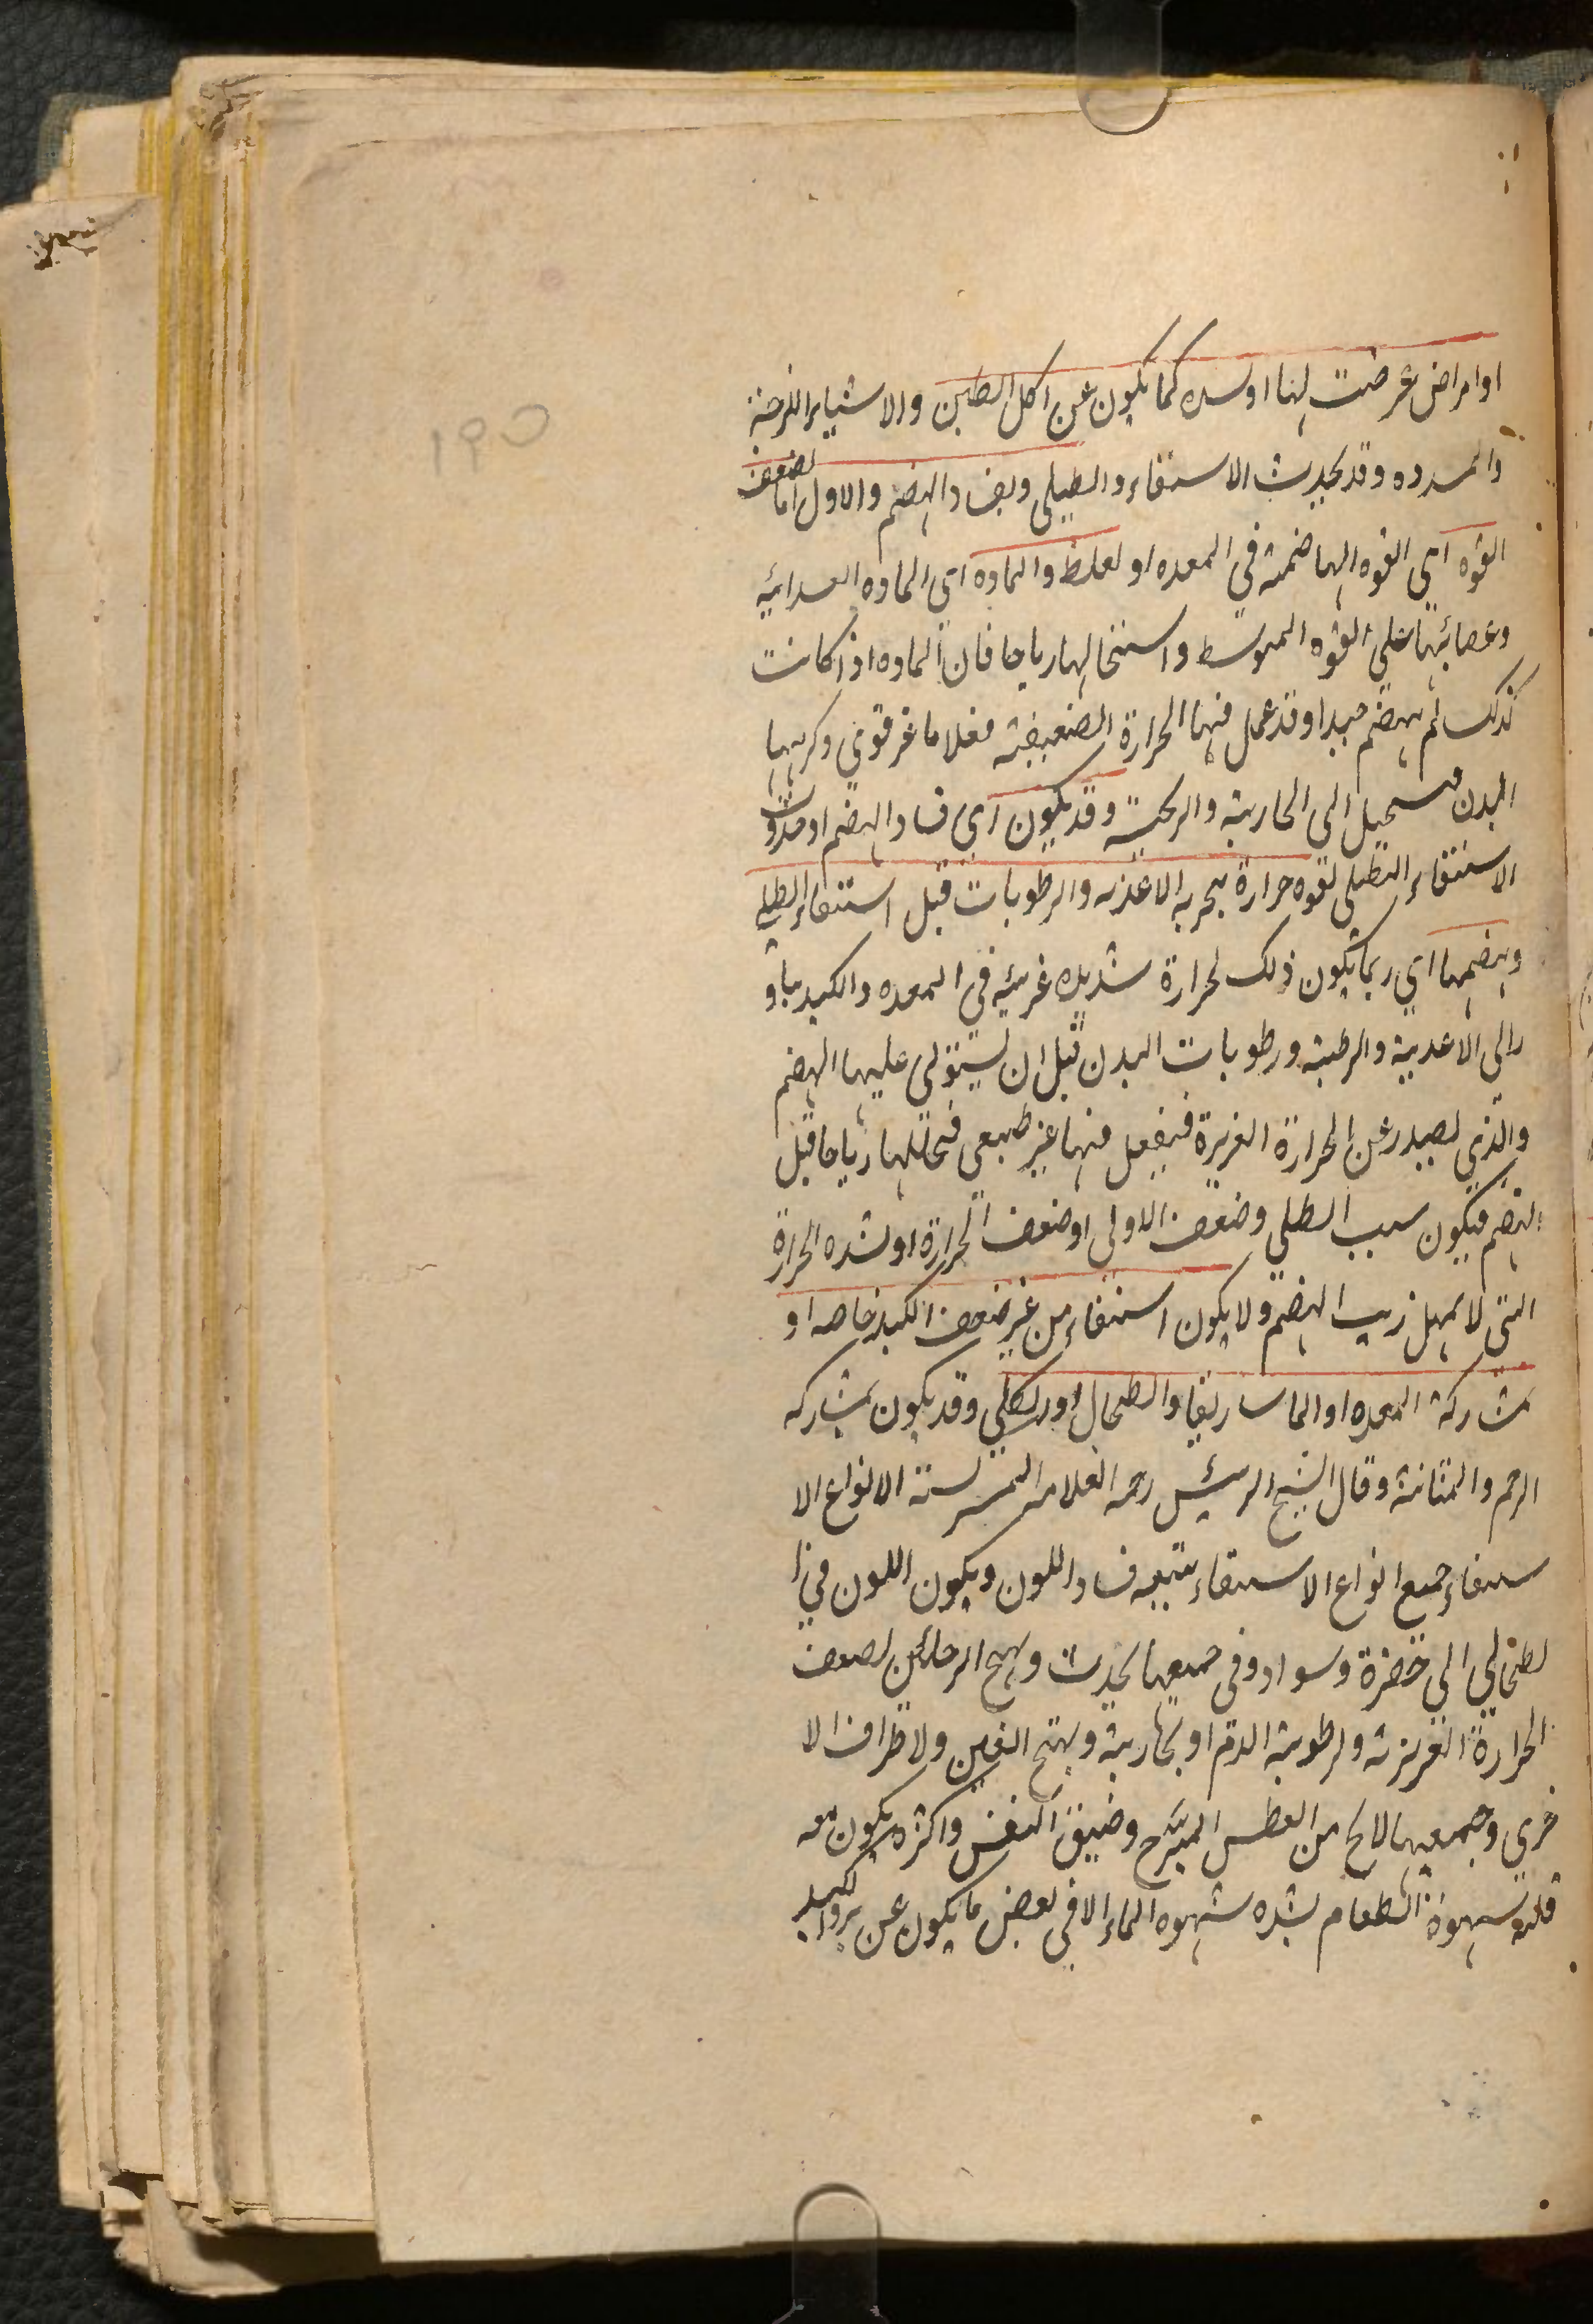 ١٩٥
او امراض عرضت لها او سده كما يكون عن اكل الطين والاشياء اللزجة
والسدده وقد يحدث الاستقاء والطبلي وبفساد الهضم والاول اما لضعف
القوه اى القوه الهاضمة فى المعده او لغلظ والماده اى الماده الغدائيه
وعصائبها على القوه المتوسط واستحالها رياحا فان الماده اذا كانت
كذلك لم يهضم جيدا وقد عمل فيها الحرارة الضعيفة فعلا ما غر قوى وكربها
البدن مستحيل الى البخارية والريحية وقد يكون اى فساد الهضم او حدوث
الاستقاء الطبلى لقوه حرارة يبخر به الاغذيه والرطوبات قبل استقاء الطبلي
وهضمها اي ربما يكون ذلك لحرارة شديده غريبه فى المعده والكبد يباو
رالى الاغدية والرطبة ورطوبات البدن قبل ان يستولى عليها الهضم
والذي يصدر عن الحرارة الغريزة فيفعل فيها غير طبيعى فحللها رياحا قبل
الهضم فيكون سبب الطبلي وضعف الاولى او ضعف الحرارة او شده الحرارة
التى لا يمهل زيب الهضم ولا يكون استقاء من غير ضعف الكبد خاصه او
بمشاركة المعده او الماساريقا والطحال او الكلي وقد يكون بمشاركه
الرحم والمثانة وقال الشيخ الرئيس رحمه العلامه المشتركة الانواع الا
ستقاء جميع انواع الاستقاء يتبعه فساد اللون ويكون اللون في ا
لطحالي الى خضرة وسواد وفى جميعها يحدث وتهيج الرجلين لضعف
الحرارة الغريزية ولرطوبة الدم او بخارية وتهيج العين والاطراف الا
خرى وجميعها لا يخ من العطس المبرح وضيق النفس واكثره يكون معه
قلته شهوة الطعام بشده شهوه الماء الا فى بعض ما يكون عن برد الكبد